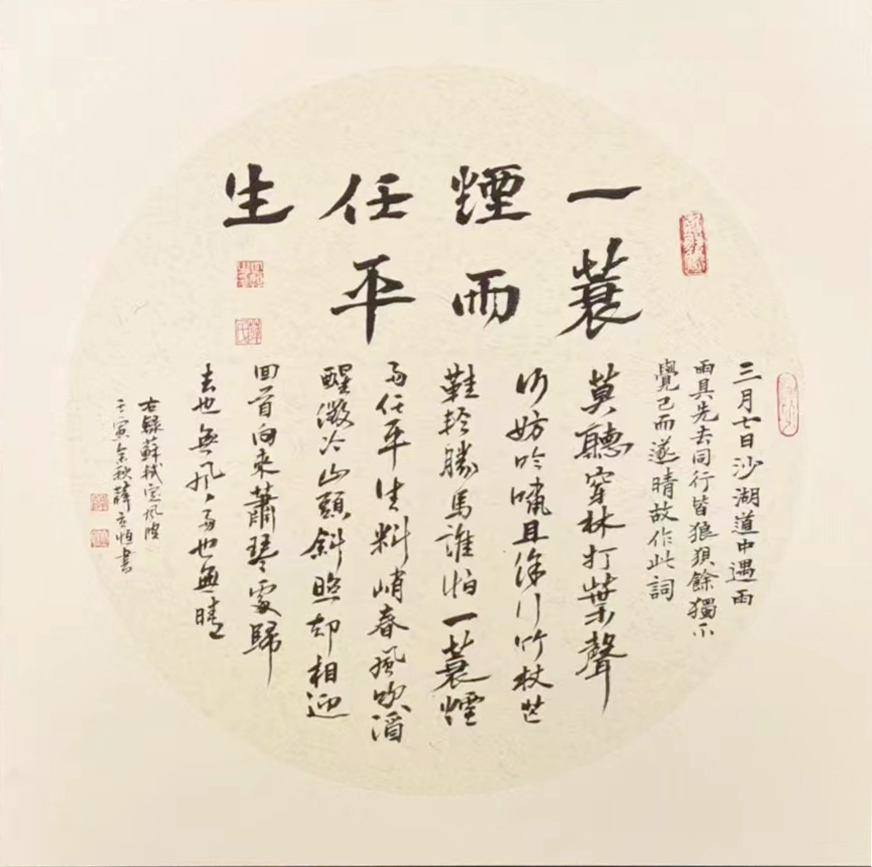 一蓑
煙雨
任平
生
三月七日沙湖道中遇雨
雨具先去同行皆狼狽餘獨不
覺已而遂晴故作此詞
莫聽穿林打葉聲
何妨吟嘯且徐行竹杖芒
鞋輕勝馬誰怕一蓑煙
雨任平生料峭春風吹酒
醒微冷山頭斜照却相迎
回首向來蕭瑟處歸
去也無風雨也無晴
右錄蘇軾定風波
壬寅金秋薛恒書